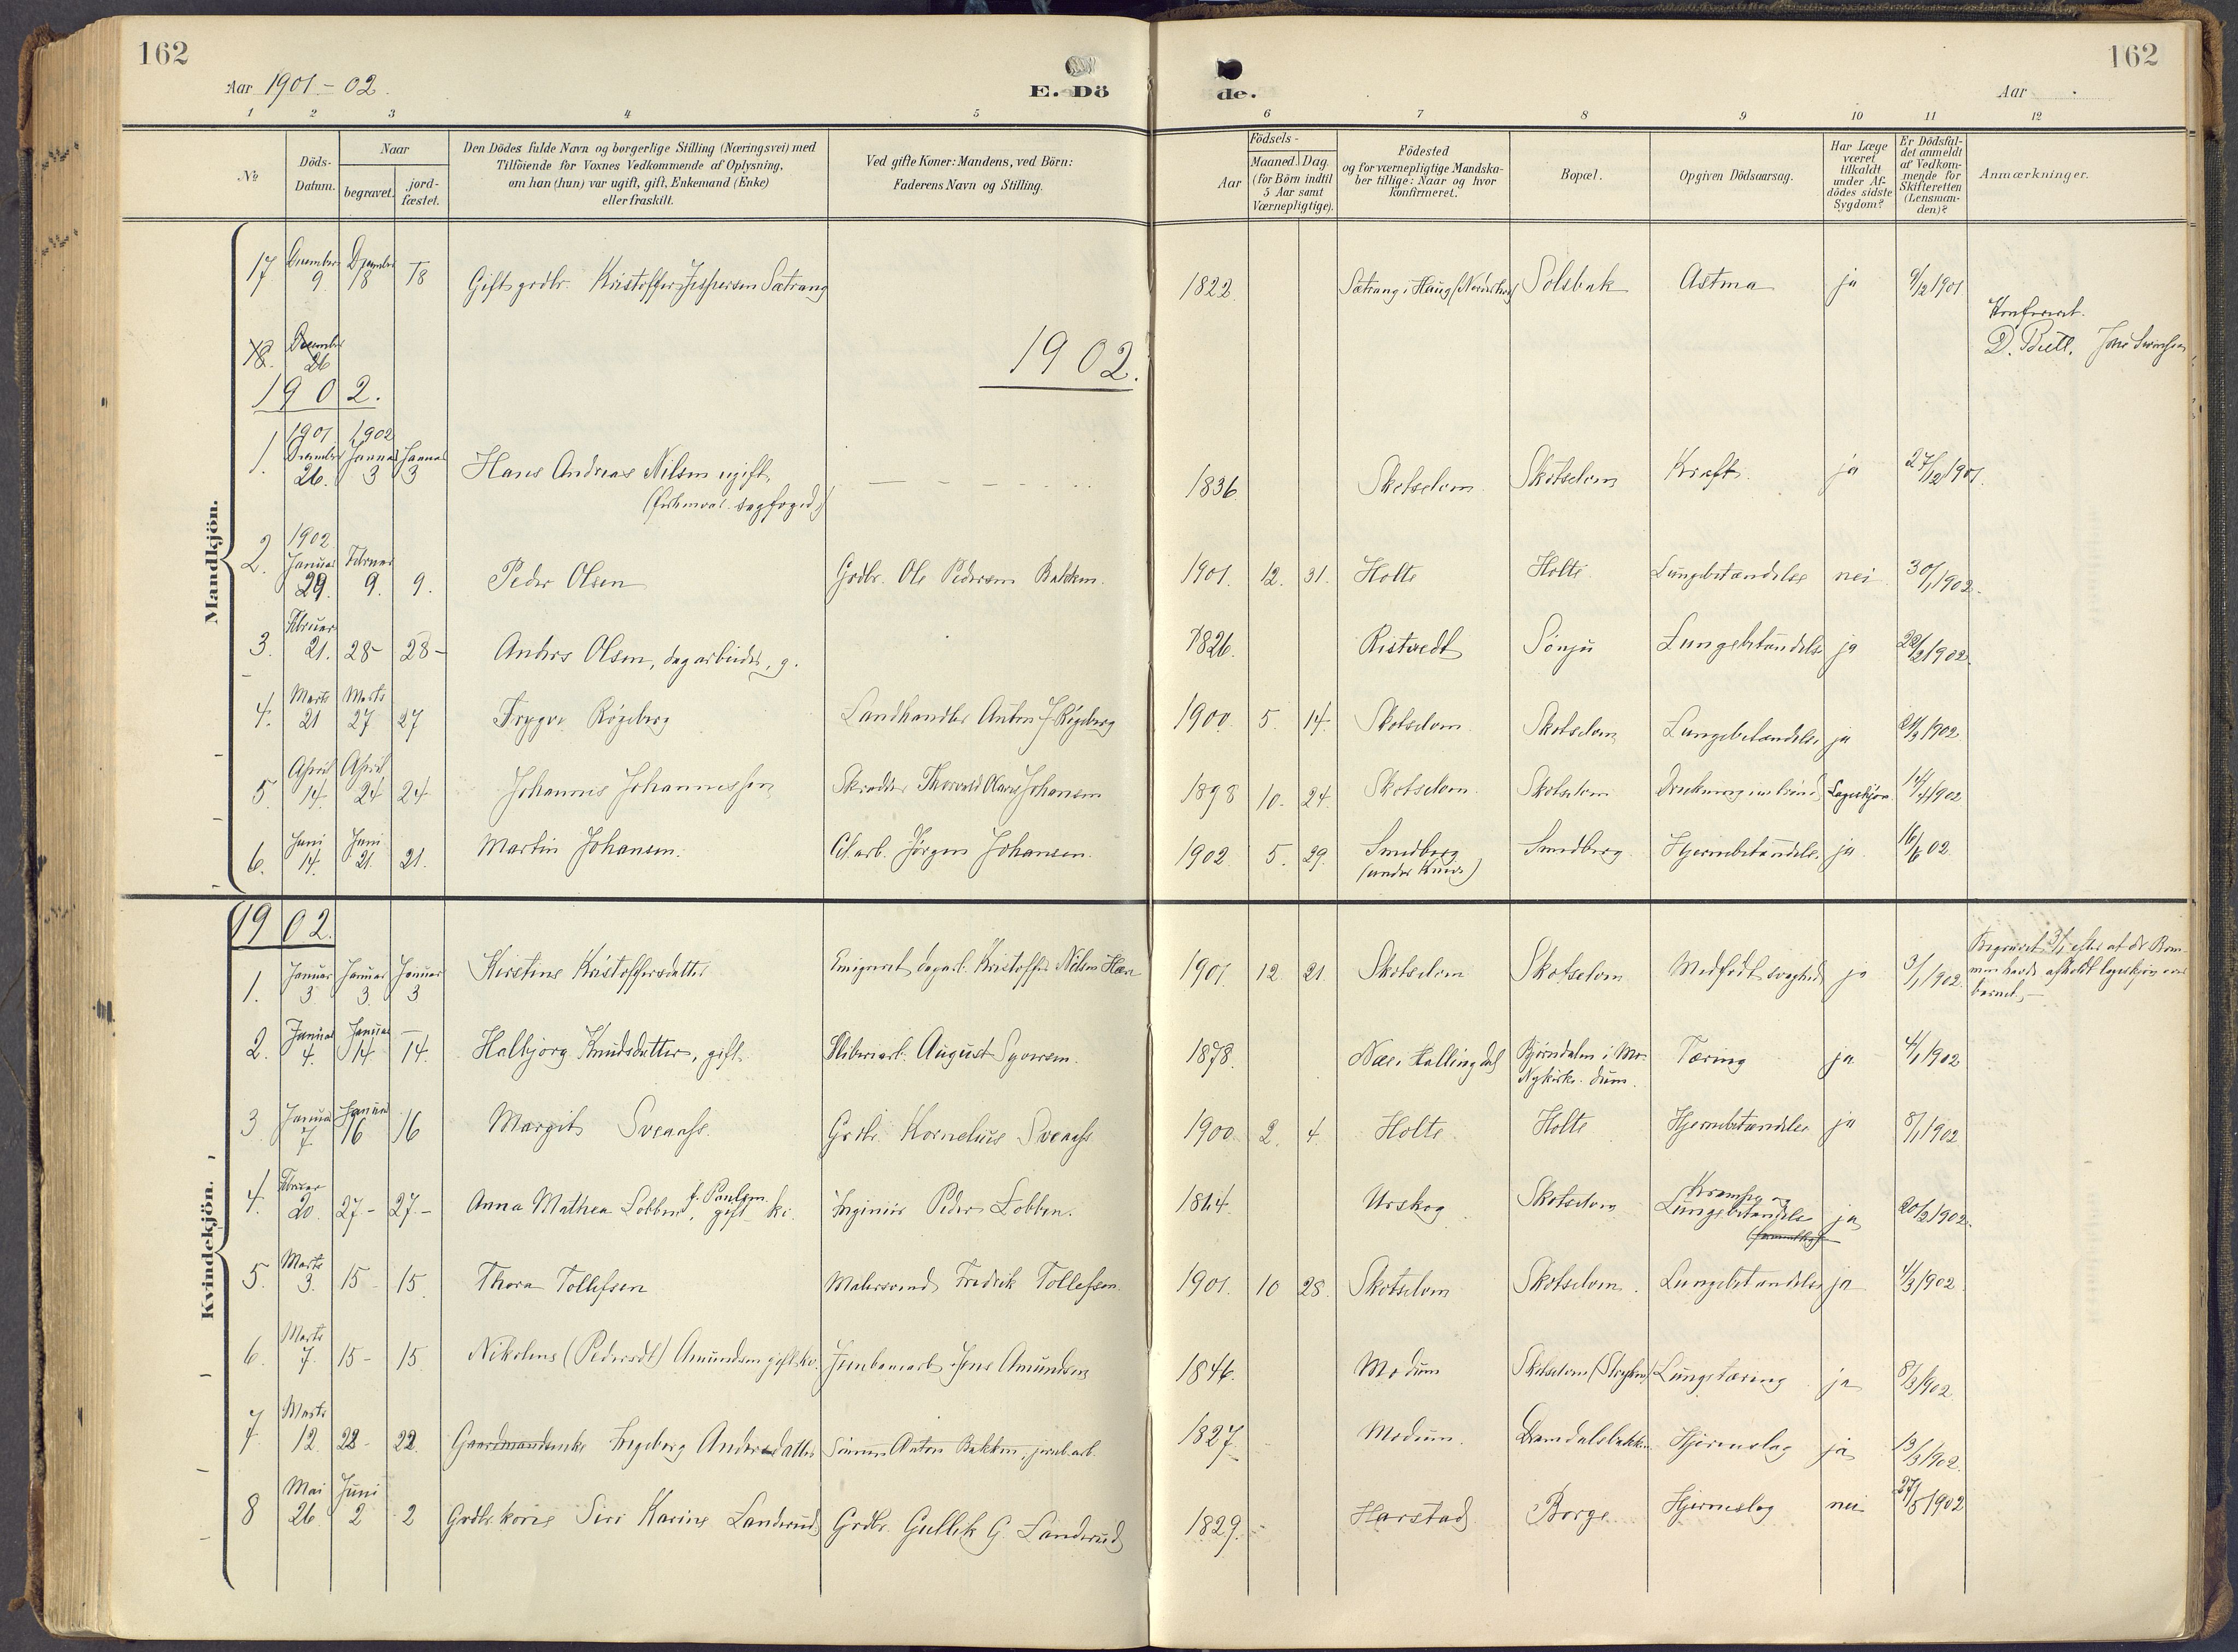 162
162
Aar 1901-02.
E. Dö
de.
Aar
1 2 3 4 5 6 7 8 9 10 11 12
No
Döds-Datum.
Naar
begravet.
jord-fæstet.
Den Dödes fulde Navn og borgerlige Stilling (Næringsvei) med
Tilföiende for Voxnes Vedkommende af Oplysning,
om han (hun) var ugift, gift, Enkemand (Enke)
eller fraskilt.
Ved gifte Koner: Mandens, ved Börn:
Faderens Navn og Stilling.
Födsels-
Aar
Maaned. Dag.
(for Börn indtil
5 Aar samt
Værnepligtige).
Födested
og for værnepligtige Mandska-
ber tillige: Naar og hvor
konfirmeret.
Bopæl.
Opgiven Dödsaarsag.
Har Læge
været
tilkaldt
under Af-
dödes sidste
Sygdom?
Er Dödsfal-
det anmeldt
af Vedkom-
mende for
Skifteretten
(Lensman-
den)?
Anmærkninger.
Mandkjön.
17 December 9 December 18 18 Gift grdbr. Kristoffer Jespersen Sætrang 1822. Sætrang i Haug (Norderhov) Solsbak Astma ja 9/12 1901
Konfereret.
D. Bull.
18. December 26
1902.
1902.
1. 1901 December 26. 1902 Januar 3 Januar 3 Hans Andreas Nilsen ugift, 1836. Skotselven Skotselven Kræft. ja 27/12 1901.
2. 1902 Januar 29. Februar 9. 9. Peder Olsen Grdbr. Ole Pedersen Bakken. 1901. 12. 31. Holte Holte Lungebetændelse nei 30/1 1902.
3. Februar 21. 28- 28- Anders Olsen, dagarbeider, g. 1826. Ristvedt Sönju Lungebetændelse ja 22/2 1902.
4. Marts 21 Marts 27 27 Trygve Røgeberg Landhandler Anton J. Røgeberg 1900. 5. 14. Skotselven Skotselven Lungebetændelse ja 21/3 1902.
5. April 14. April 24 24 Johannes Johannessen Skrædder Johansen 1898 10. 24. Skotselven. Skotselven Lagskjøn 14/4 1902
6. Juni 14. Juni 21. 21. Martin Johansen. Cel.arb. Jørgen Johansen. 1902. 5. 29. Smedberg Smedberg. Hjernebetændelse ja. 16/6 02.
Kvindekjön.
1902.
1. Januar 3 Januar 3. Januar 3 Kirstine Kristoffersdatter Emigreret dagarb. Kristoffer Nilsen 1901. 12. 21. Skotselven Skotselven Medfødt svaghed ja 3/1 1902. Begravet 3/1 efter at dr Rom-
men havde afholdt ligskjøn over
barnet.-
2. Januar 4. Januar 14 14. Halbjørg Knudsdatter, gift. Sliberiarb. August Syversen. 1878. Næs i Hallingdal Bjørndalen i Mo-
Nykirke. dum. Tæring ja 4/1 1902
3 Januar 7. Januar 16 16 Margit Svendsen. Grdbr. Kornelius Svendsen 1900. 2. 4. Holte. Holte Hjernebetændelse ja 8/1 1902
4. Februar 20. 27- 27.- Anna Mathea Lobben f. Paulsen, gift kv. Ingeniør Peder Lobben. 1864. Urskog Skotselven Krampe og
Lungebetændelse ja 20/2 1902.
5. Marts 3. 15- 15. Thora Tollefsen Malersvend Fredrik Tollefsen. 1901. 10 28. Skotselven Skotselven. Lungebetændelse ja 4/3 1902.
6. Marts 7. 15- 15 Nikoline (Pedersdt) Amundsen gift kv. Jernbanearb. Jens Amundsen 1846. Modum Skotselven Lungetæring ja 8/3 1902.
7 Marts 12. 22- 22. Gaardmandsenke Ingeborg Andersdatter Sønnen Anton Bakken, jernb.arb. 1827. Modum. Hjerneslag ja 13/3 1902.
8 Mai 26 Juni 2 2 Grdbr.kone Siri Karine Landerud Grdbr. Gullik G. Landerud 1829. Harstad Borge Hjerneslag nei 27/5 1902